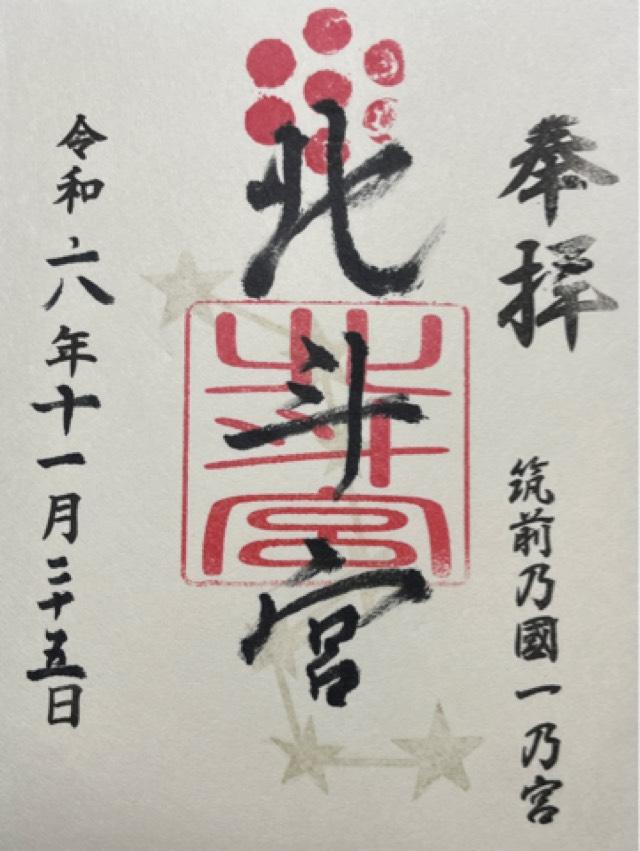 奉拝
筑前乃國一乃宮
北斗宮
北斗宮
令和六年十一月二十五日